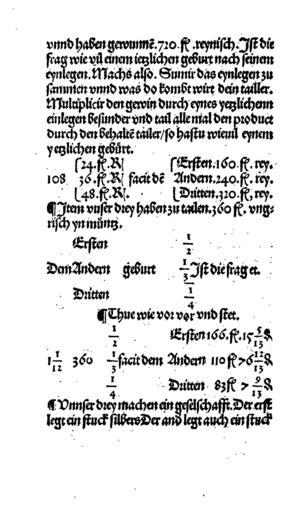 vnnd haben gewunnē.720.fl. reynisch. Ist die
frag wie vil einem ietzlichen geburt nach seinem
eynlegen. Machs also. Sumir das eynlegen zu
sammen vnnd was do kombt wirt dein tailler.
Multiplicir den gewin durch eynes yetzlichenn
einlegen besunder vnd tail alle mal den product
durch den behaltē tailer/so hastu wieuil eynem
yetzlichen gebürt.
24.fl.R Ersten.160.fl. rey.
108 36.fl.R facit dē Andern.240.fl. rey.
48.fl.R. Dritten.320.fl. rey.
¶Item vnser drey haben zu tailen.360 fl. vng-
risch yn müntz.
Ersten 1/2
Dem Andern geburt 1/3 Ist die frag et.
Dritten 1/4
¶Thue wie vor vnd stet.
1/2 Ersten 166.fl. 15 5/13 ß
1 1/12 360 1/3 facit dem Andern 110 fl 76 12/13 ß
1/4 Dritten 83 fl 7 9/13 ß
¶Vnnser drey machen ein geselschafft. Der erst
legt ein stuck silbers Der and legt auch ein stuck